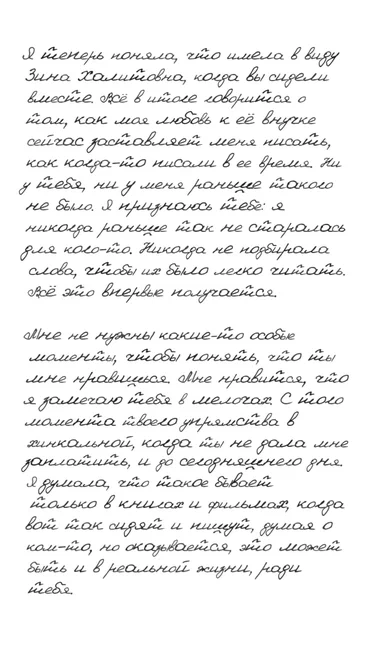 Я теперь поняла, что имела в виду
Зина Халитовна, когда вы сидели
вместе. Всё в итоге говорится о
том, как моя любовь к её внучке
сейчас заставляет меня писать,
как когда-то писали в ее время. Ни
у тебя, ни у меня раньше такого
не было. Я признаюсь тебе: я
никогда раньше так не старалась
для кого-то. Никогда не подбирала
слова, чтобы их было легко читать.
Всё это впервые получается.

Мне не нужны какие-то особые
моменты, чтобы понять, что ты
мне нравишься. Мне нравится, что
я замечаю тебя в мелочах. С того
момента твоего упрямства в
хинкальной, когда ты не дала мне
заплатить, и до сегодняшнего дня.
Я думала, что такое бывает
только в книгах и фильмах, когда
вот так сидят и пишут, думая о
ком-то, но оказывается, это может
быть и в реальной жизни, ради
тебя.